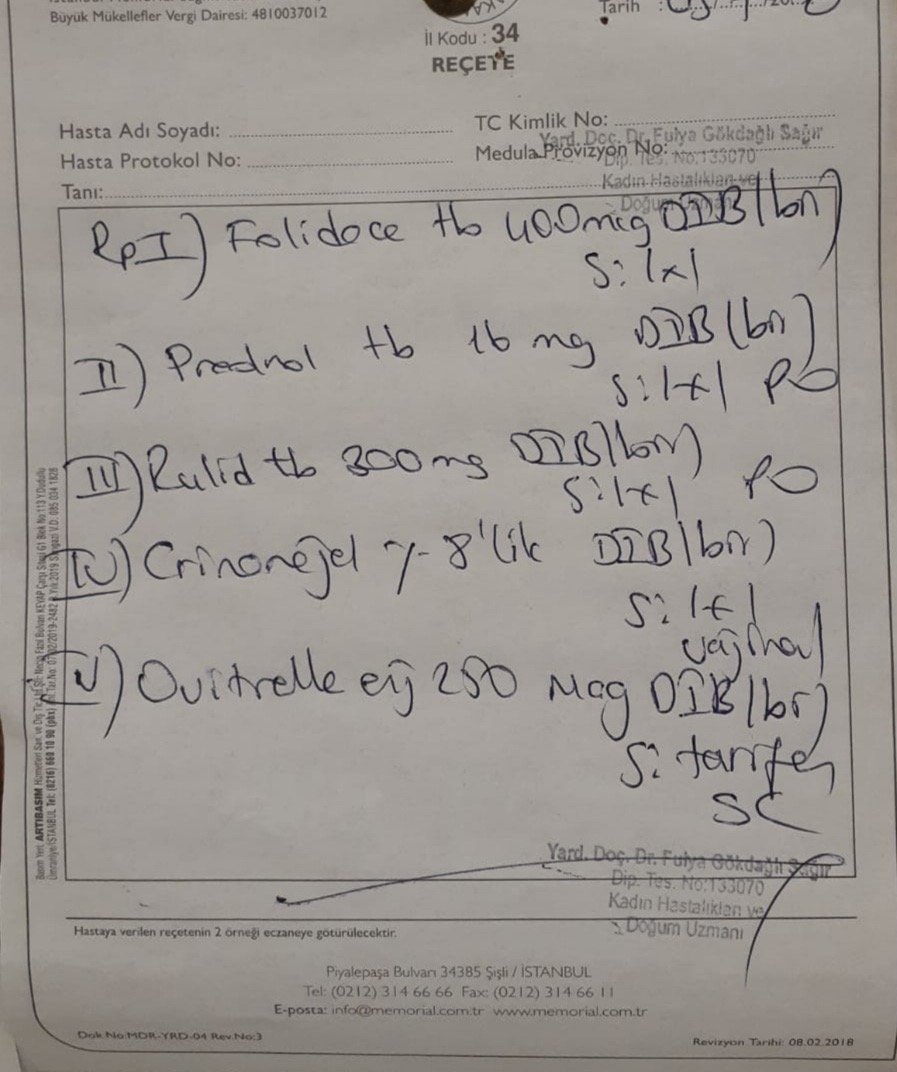 Büyük Mükellefler Vergi Dairesi: 4810037012
Tarih :
İl Kodu : 34
REÇETE
Hasta Adı Soyadı:
TC Kimlik No:
Hasta Protokol No:
Medula Provizyon No:
Tanı:
Yard. Doç. Dr. Fulya Gökdağlı Sağır
Dip. Tes. No:133070
Kadın Hastalıkları ve
Doğum Uzmanı
Rp I) Folidoce tb 400mcg DIB(bir)
S: 1x1
II) Prednol tb 16 mg DIB(bir)
S: 1x1 PO
III) Rulid tb 300mg DIB(bir)
S: 1x1 PO
IV) Crinone jel %8'lik DIB(bir)
S: 1x1
vajinal
V) Ovitrelle enj 250 Mcg DIB(bir)
S: tarifen
SC
Yard. Doç. Dr. Fulya Gökdağlı Sağır
Dip. Tes. No:133070
Kadın Hastalıkları ve
Doğum Uzmanı
Hastaya verilen reçetenin 2 örneği eczaneye götürülecektir.
Piyalepaşa Bulvarı 34385 Şişli / İSTANBUL
Tel: (0212) 314 66 66 Fax: (0212) 314 66 11
E-posta: info@memorial.com.tr www.memorial.com.tr
Dok.No:MDR-YRD-04 Rev.No:3
Revizyon Tarihi: 08.02.2018